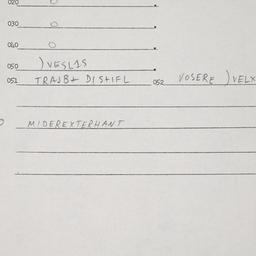 020 O
030 O
040 O
050 )VESLIS
051 TRAJB+ DISTIFL 052 VOSERE )VELX
MIDEREXTERHANT